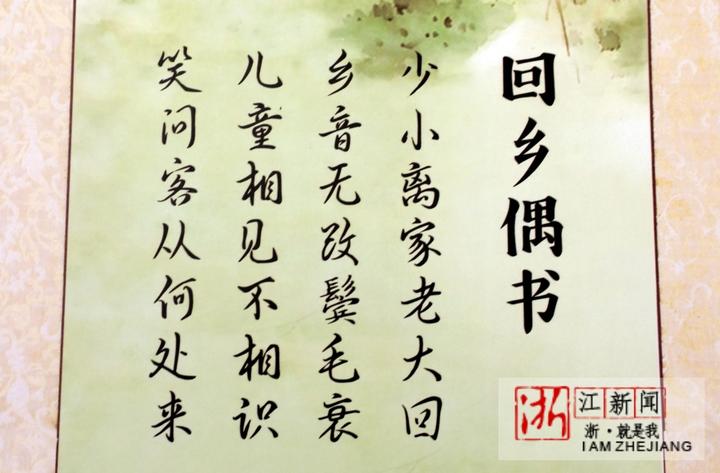 回乡偶书
少小离家老大回
乡音无改鬓毛衰
儿童相见不相识
笑问客从何处来
浙江新闻
浙·就是我
I AM ZHEJIANG